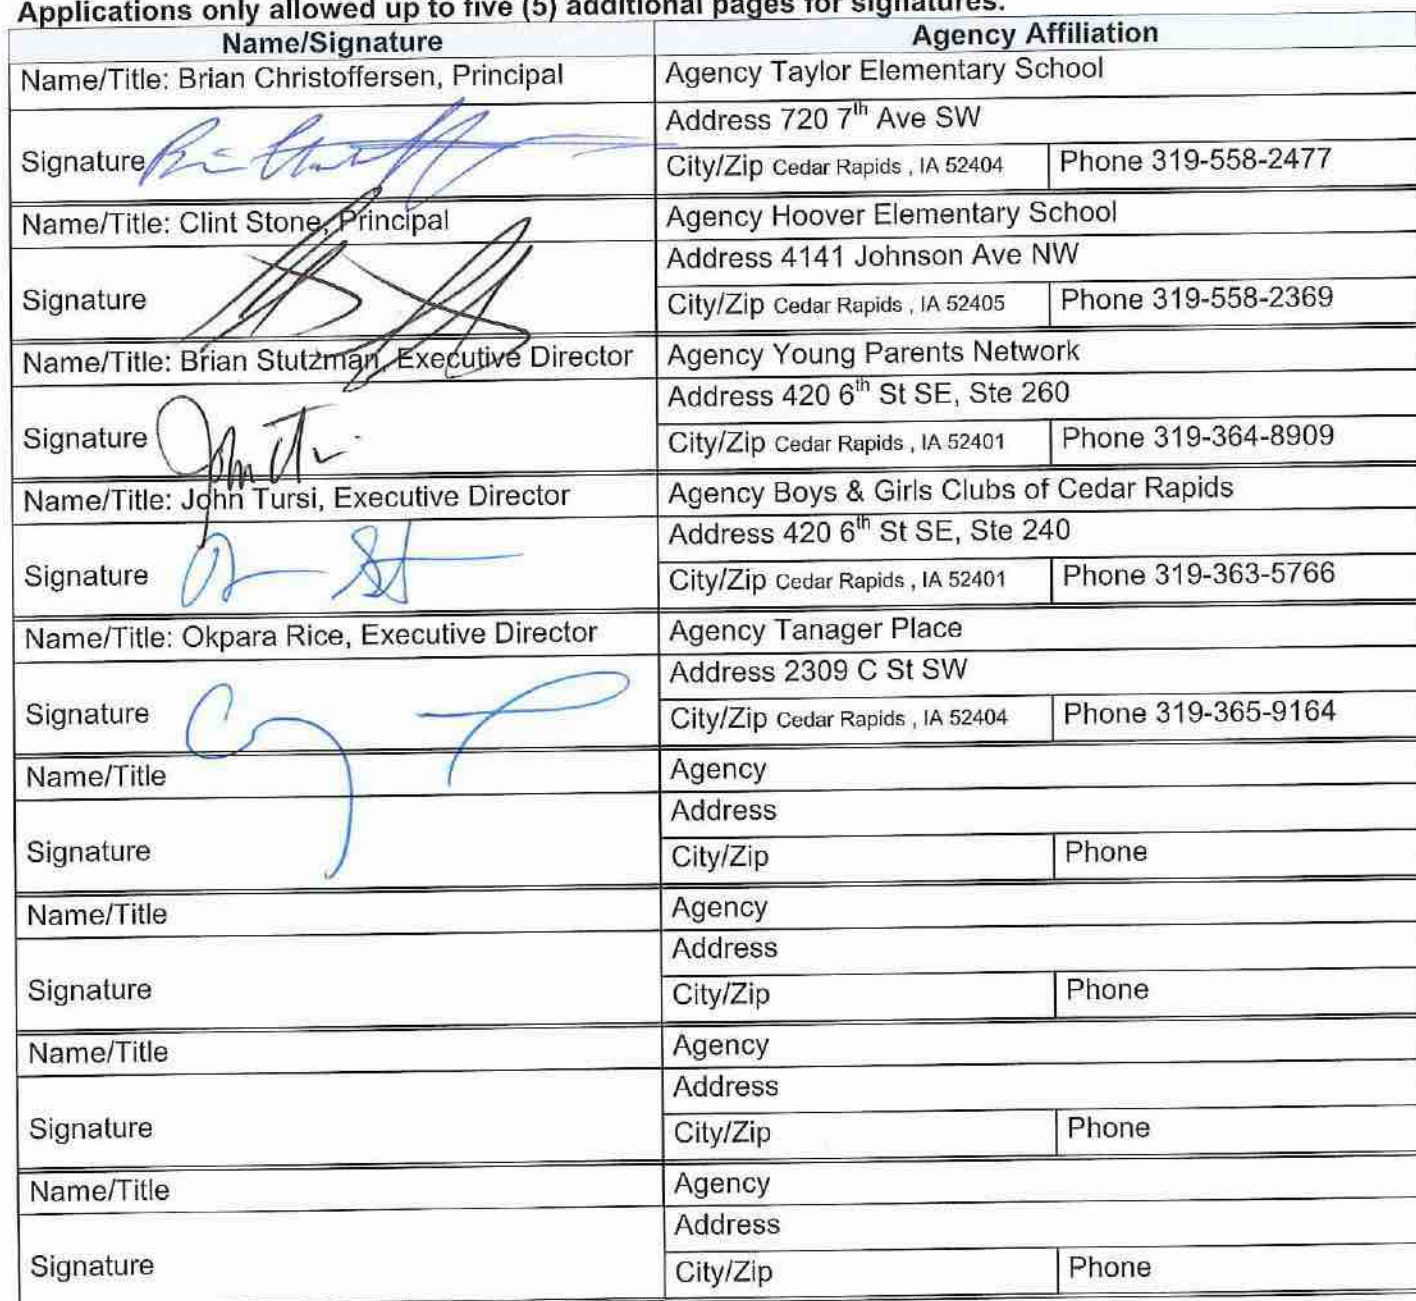 Applications only allowed up to five (5) additional pages for signatures.
Name/Signature Agency Affiliation
Name/Title: Brian Christoffersen, Principal Agency Taylor Elementary School
Address 720 7th Ave SW
Signature City/Zip Cedar Rapids , IA 52404 Phone 319-558-2477
Name/Title: Clint Stone, Principal Agency Hoover Elementary School
Address 4141 Johnson Ave NW
Signature City/Zip Cedar Rapids , IA 52405 Phone 319-558-2369
Name/Title: Brian Stutzman, Executive Director Agency Young Parents Network
Address 420 6th St SE, Ste 260
Signature City/Zip Cedar Rapids , IA 52401 Phone 319-364-8909
Name/Title: John Tursi, Executive Director Agency Boys & Girls Clubs of Cedar Rapids
Address 420 6th St SE, Ste 240
Signature City/Zip Cedar Rapids , IA 52401 Phone 319-363-5766
Name/Title: Okpara Rice, Executive Director Agency Tanager Place
Address 2309 C St SW
Signature City/Zip Cedar Rapids , IA 52404 Phone 319-365-9164
Name/Title Agency
Address
Signature City/Zip Phone
Name/Title Agency
Address
Signature City/Zip Phone
Name/Title Agency
Address
Signature City/Zip Phone
Name/Title Agency
Address
Signature City/Zip Phone